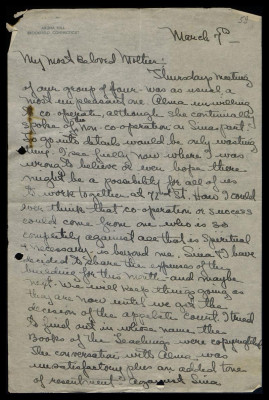 53
BEDFORD, CONNECTICUT
March 7th
My most Beloved Mother:
Thursdays meeting
of our group of four was as usual a
most unpleasant one Alma unwilling
to co operate, although she continually
spoke of non co-operation on Sina's part
to go into details would be only wasting
time. I see finally now where I was
wrong to believe or even hope there
might be a possibility for all of us
to work together, at 72nd St. How I could
ever think that co-operation or success
could come from one who is so
completely against all that is spiritual
& necessary is beyond me. Sina & I have
decided to share the expenses of the
building for this month and maybe
next. We will keep things going as
they are now until we get the
decision of the appelate court. I tried
to find out in whose name the
Books of the Teaching were copyrighted.
The conversation with Alma was
unsatisfactory plus an added tone
of resentment against Sina